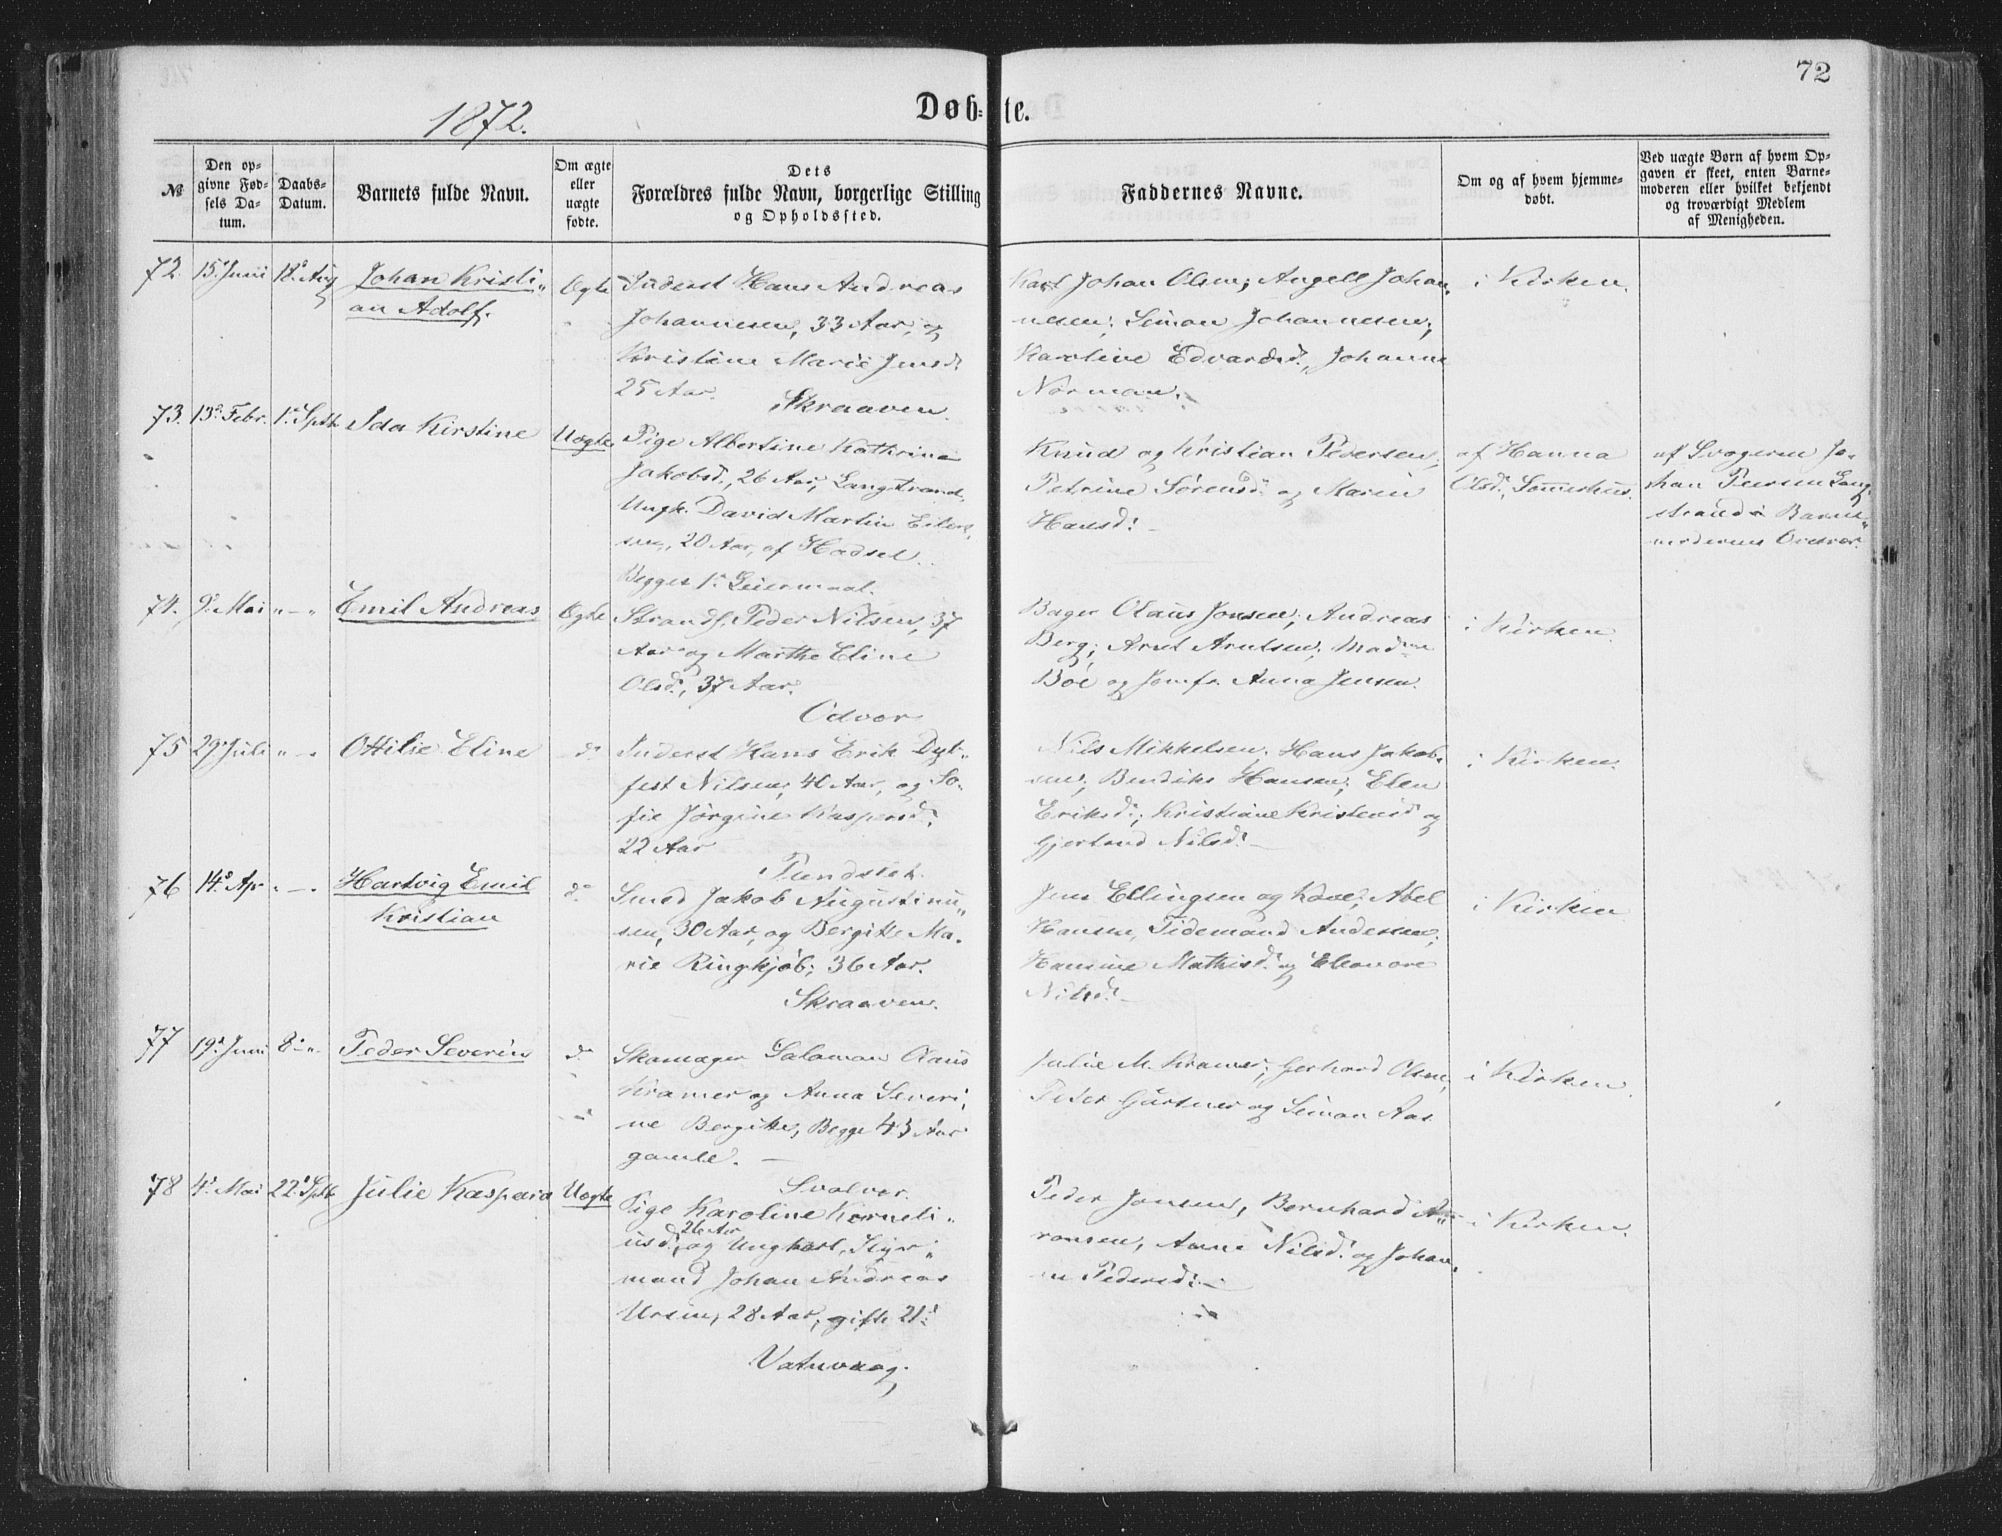 72
1872.
Døb=te.
№
Den op=
givne Fød=
sels Da=
tum.
Daabs=
Datum.
Barnets fulde Navn.
Om ægte
eller
uægte
fødte.
Dets
Forældres fulde Navn, borgerlige Stilling
og Opholdssted.
Faddernes Navne.
Om og af hvem hjemme=
døbt.
Ved uægte Børn af hvem Op=
gaven er skeet, enten Barne=
moderen eller hvilket bekjendt
og troværdigt Medlem
af Menigheden.
72. 15. Juni 18. Aug
Johan Kristi
an Adolf.
Ægte
Inderst Hans Andreas
Johannesen, 33 Aar, og
Kristine Marie Jensd.
25 Aar.
Skraaven.
Karl Johan Olsen; Angell Johan
nesen; Simon Johannesen;
Karoline Edvardsd., Johanna
Norman.
i Kirken.
73. 13. Febr. 1. Septb
Ida Kirstine
Uægte
Pige Albertine Kathrine
Jakobsd., 26 Aar, Langstrand,
Ungk. David Martin Eilert
sen, 20 Aar, af Hadsel.
Begges 1. Leiermaal.
Knud og Kristian Pedersen,
Petrine Sørensd. og Maren
Hansd.
af Hanna
Olsd.
af Svogeren Jo=
han Lang
strand i Barne
moderens
74. 9. Mai " — "
Emil Andreas
Ægte
Strands. Peder Nilsen, 37
Aar og Marthe Eline
Olsd., 37 Aar.
Odvær
Bager Olaus Jonsen; Andreas
Berg; Arnt Arntsen; Madme
Bøe og Jomfr. Anna Jensen.
i Kirken.
75 29 Juli " — "
Ottilie Eline
do
Inderst Hans Erik Dyb
fest Nilsen, 40 Aar, og So=
fie Jørgine Kaspersd.
22 Aar
Tundstet.
Nils Mikkelsen, Hans Jakob
sen, Bendiks Hansen; Elen
Eriksd.; Kristiane Kristensd og
Gjertrud Nilsd.
i Kirken.
76 14. Ap. " — "
Hartvig Emil
Kristian
do
Smed Jakob Augustinu
sen, 30 Aar, og Bergitte Ma=
rie Ringkjøb; 36 Aar.
Skraaven.
Jens Ellingsen og Kone; Abel
Hansen, Tidemand Andersen;
Hansine Mathisd. og Eleonore
Nilsd.
i Kirken
77 19. Juni 8. "
Peder Severin
do
Skomager Salamon Olaus
Kramer og Anna Severi
ne Bergitte, Begge 43 Aar
gamle.
Svolvær.
Julie M. Kramer; Gerhard Olsen,
Peder Gärtner og Simon Aas
i Kirken
78 4. Mai 22. Sptb
Julie Kaspara
Uægte
Pige Karoline Korneli
usd., 26 Aar og Ungkarl, Styr
mand Johan Andreas
Ursin, 28 Aar, gifte 21.
Vatnvaag.
Peder Jonsen, Bernhard A
ronsen, Anne Nilsd. og Johan
n Pedersd.
i Kirken.